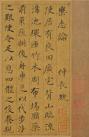 樂志論 仲長統
使居有良田廣宅背山臨流
溝池環匝竹木周布場圃築
前果園樹後舟車足以代步涉
之難使令足以息四體之役養親